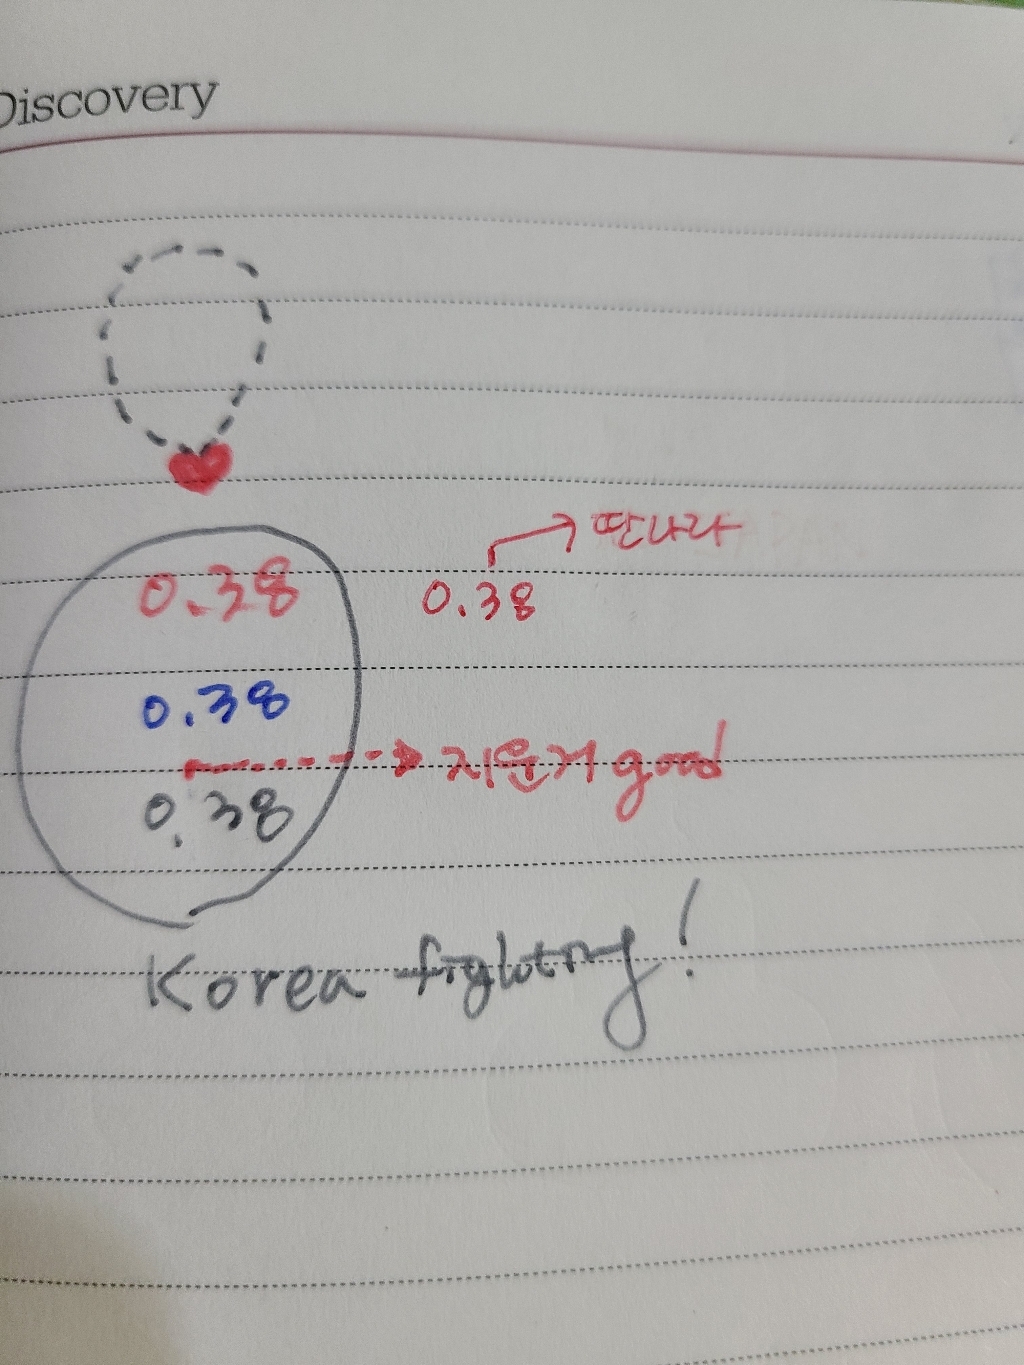 Discovery
딴나라
0.38 0.38
0.38
지운거 good
0.38
Korea fighting!